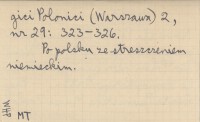 gici Polonici (Warszawa) 2,
nr 29: 323-326.
Po polsku ze streszczeniem
niemieckim.
MT